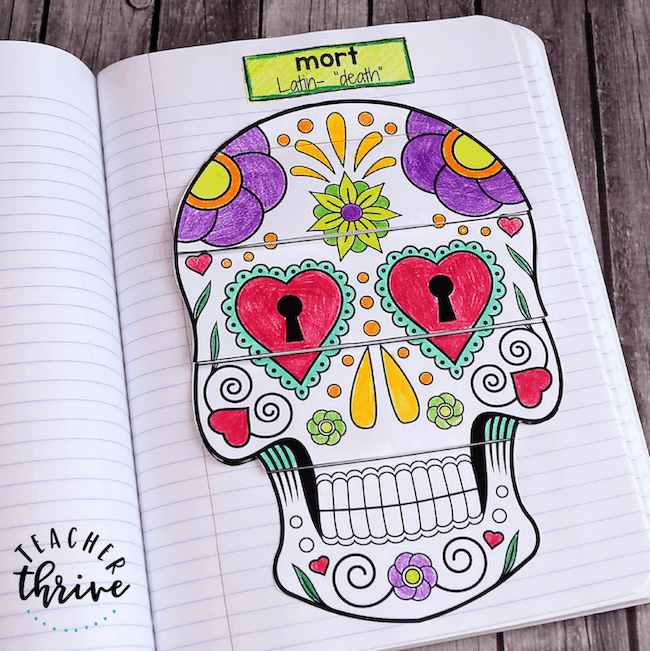 mort
Latin- "death"
TEACHER
thrive